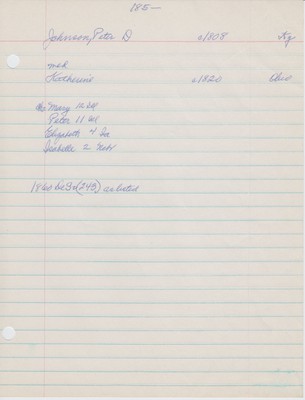 185—
Johnson, Peter D c1808 Ky
md
Katherine c1820 Ohio
ch Mary 12 Ill
Peter 11 Ill
Elizabeth 4 Ia
Isabelle 2 Nebr
1860 (243) as listed